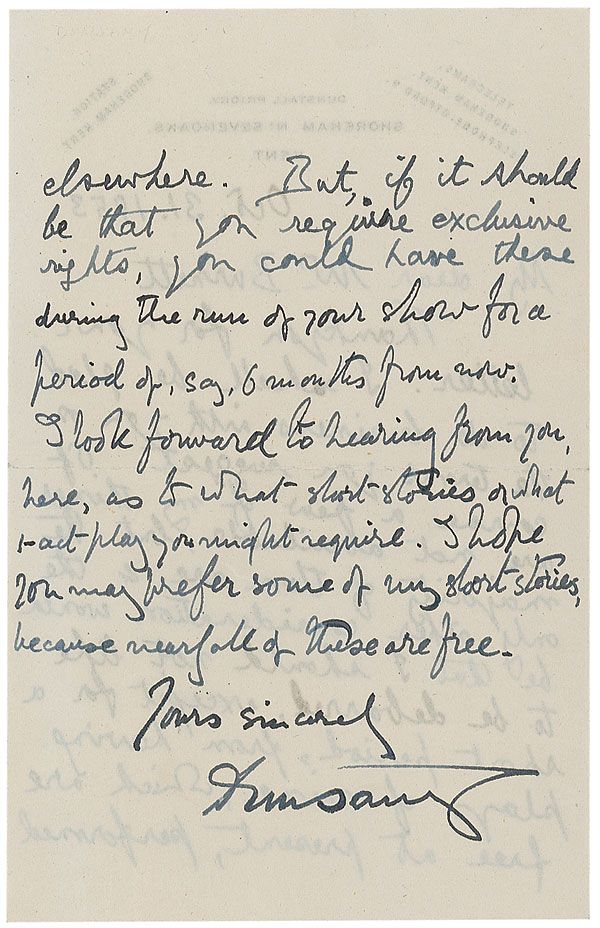 elsewhere. But, if it should
be that you require exclusive
rights, you could have these
during the run of your show for a
period of, say, 6 months from now.
I look forward to hearing from you,
here, as to what short stories or what
1-act play you might require. I hope
you may prefer some of my short stories,
because nearly all of these are free.
Yours sincerely
Dunsany